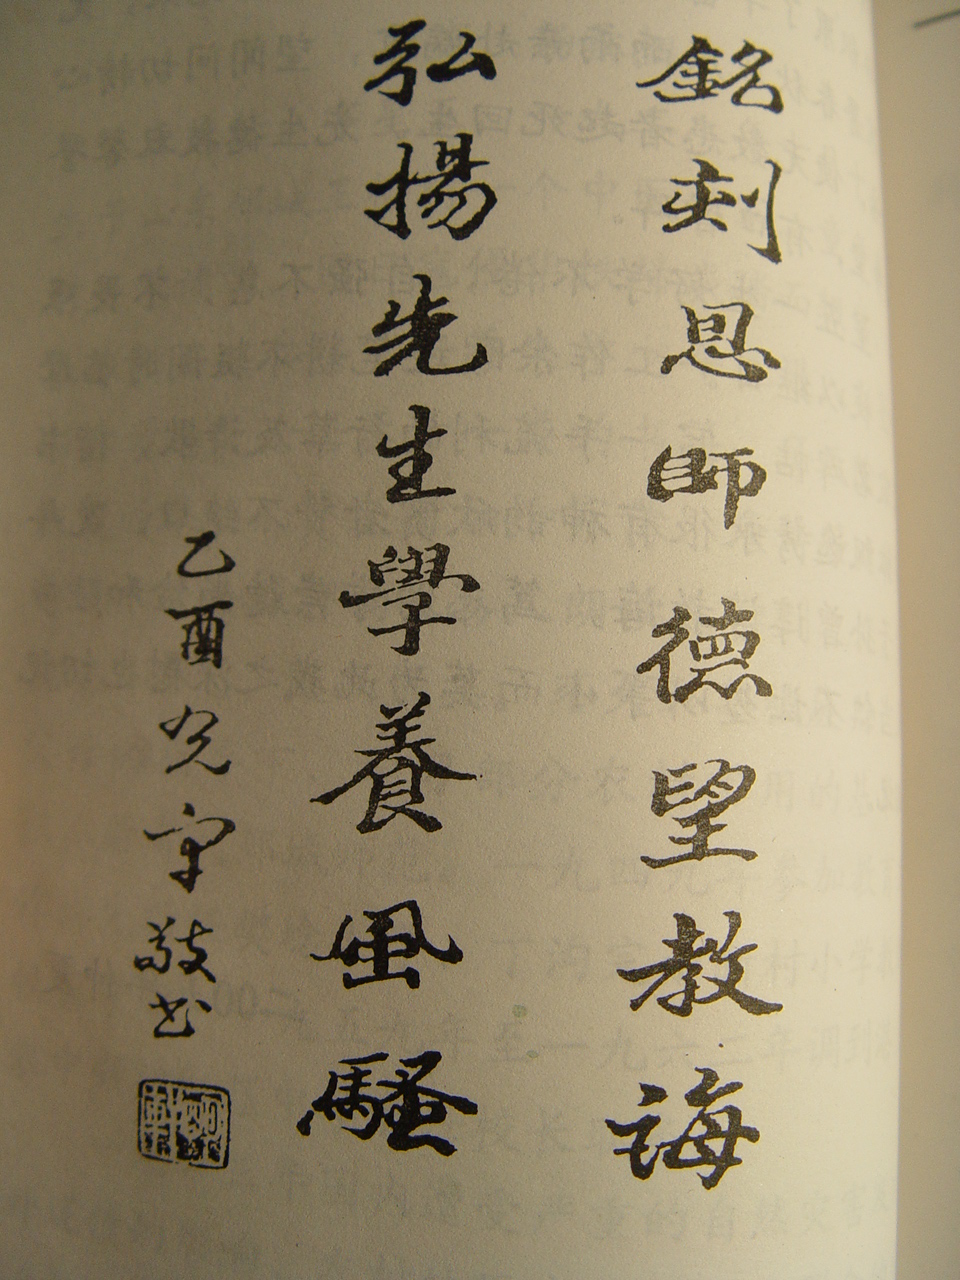 銘刻恩師德望教誨
弘揚先生學養風騷
乙酉 光宇敬书